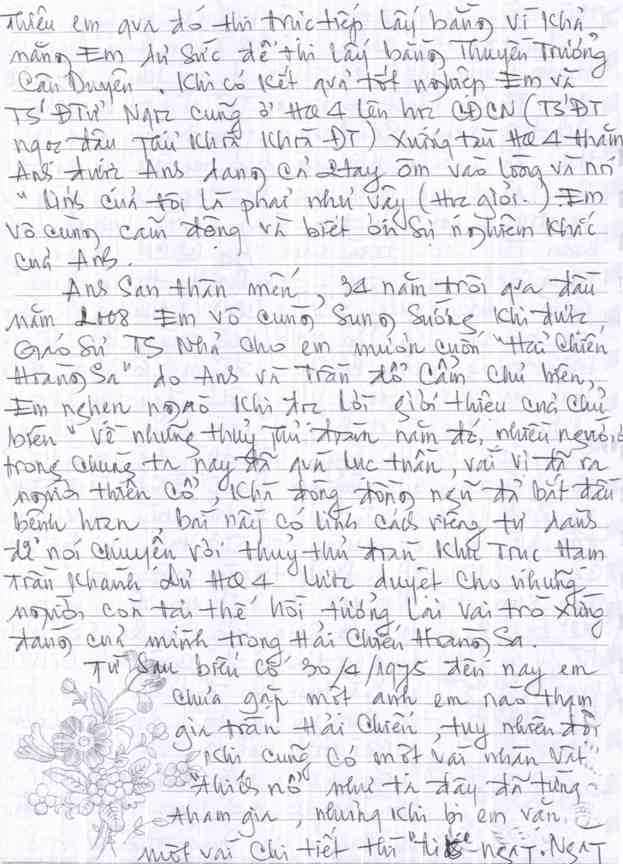 Thiều em qua đó thi trực tiếp lấy bằng vì khả
năng Em dư sức để thi lấy bằng Thuyền Trưởng
Cận Duyên. Khi có kết quả tốt nghiệp Em và
TS ĐT Ngọc cũng ở HQ4 lên học CĐCN (TS ĐT
ngọc đậu Thủ Khoa Khoá ĐT) xuống tàu HQ4 thăm
Anh được Anh dang cả 2 tay ôm vào lòng và nói
" lính của tôi là phải như vậy (học giỏi.) Em
vô cùng cảm động và biết ơn sự nghiêm khắc
của Anh.
Anh San thân mến, 34 năm trôi qua đầu
năm 2008 Em vô cùng sung sướng khi được
Giáo Sư TS Nhã cho em mượn cuốn "Hải Chiến
Hoàng Sa" do Anh và Trần đỗ Cẩm chủ biên,
Em nghẹn ngào khi đọc lời giới thiệu của chủ
biên " Về những thuỷ thủ đoàn năm đó, nhiều người
trong chúng ta nay đã quá lục tuần, vài vị đã ra
người thiên cổ, khá đông đồng ngũ đã bắt đầu
bệnh hoạn bài này có tính cách riêng tư dành
để nói chuyện với thuỷ thủ đoàn Khu Trục Hạm
Trần Khánh Dư HQ4 lược duyệt cho những
người còn tại thế hồi tưởng lại vai trò xứng
đáng của mình trong Hải Chiến Hoàng Sa.
Từ sau biến cố 30/4/1975 đến nay em
chưa gặp một anh em nào tham
gia trận Hải Chiến, tuy nhiên đôi
khi cũng có một vài nhân vật
"thích nổ" như ta đây đã từng
tham gia, nhưng khi bị em vặn
một vài chi tiết thì